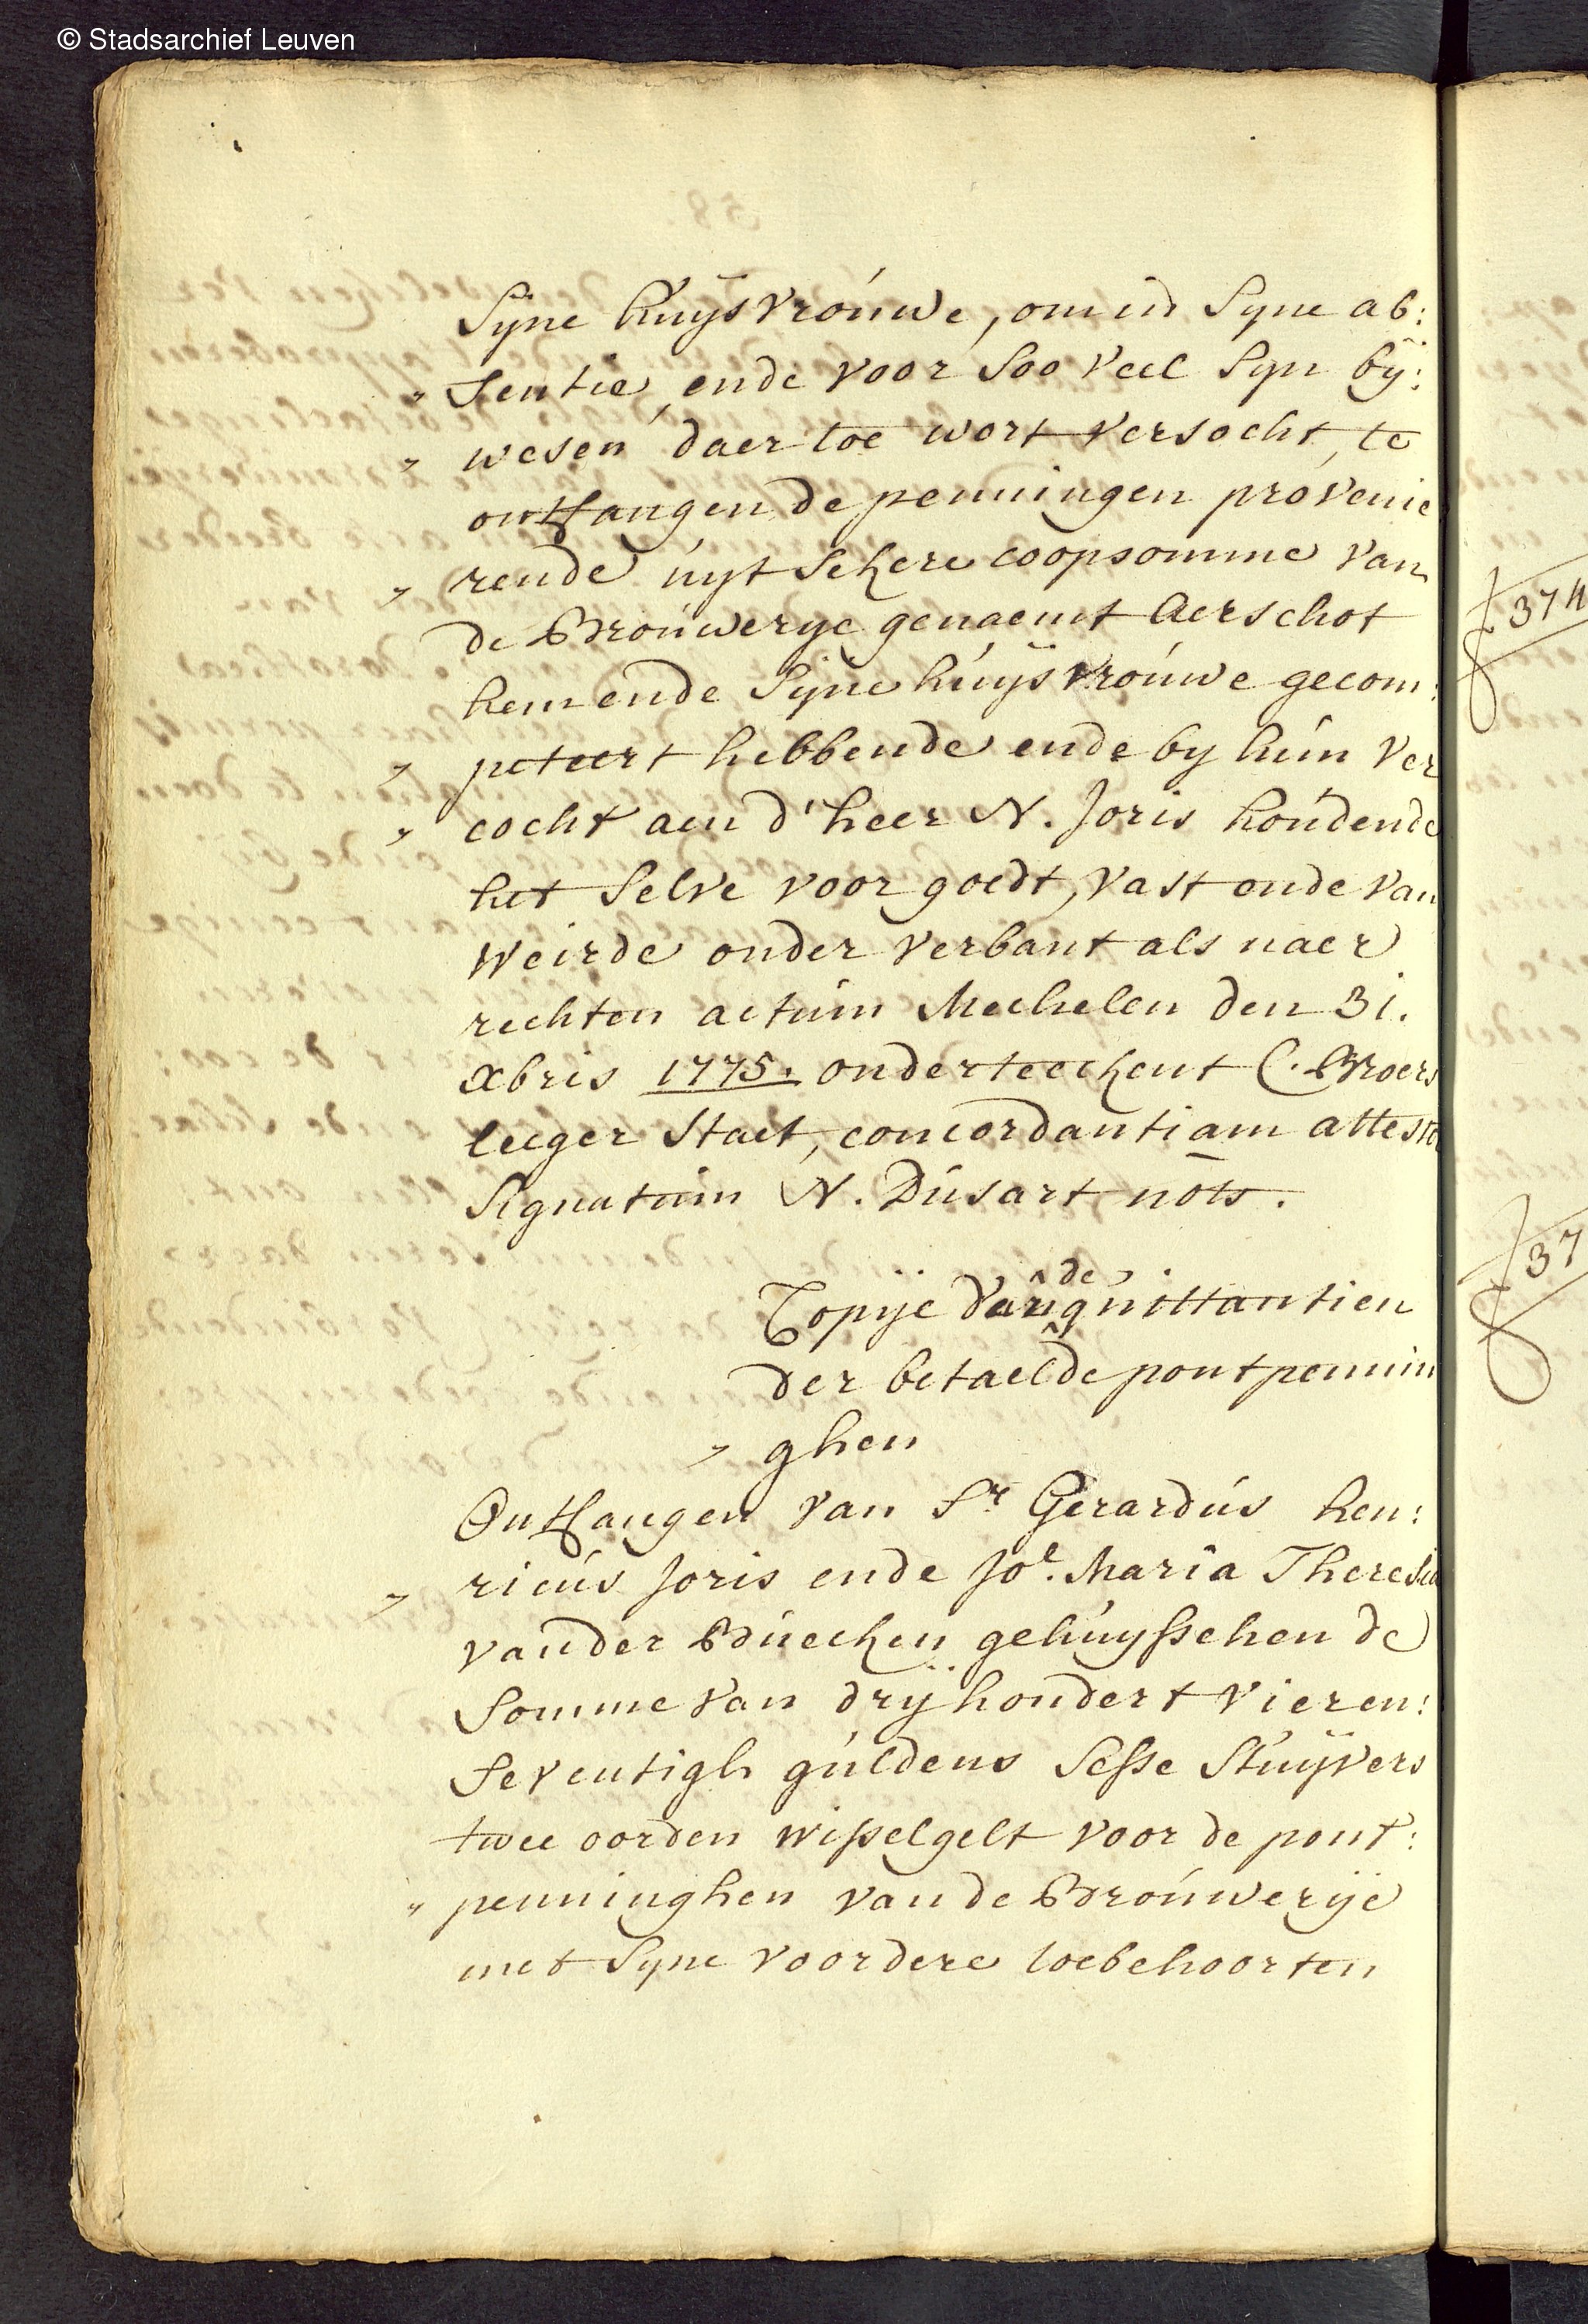 © Stadsarchief Leuven
Syne huijsvrouwe, om in Syne ab:
" sentie, ende voor soo veel syn bÿ:
" wesen daer toe wort versocht, te
ontfangen de penningen provenie
" rende uyt sekere coopsomme van
de Brouwerye genaemt Aerschot
hem ende Sÿne huÿsvrouwe gecom:
" peteert hebbende ende by hun ver
" cocht aen d'heer N. Joris houdende
het selve voor goedt, vast ende van
weirde onder verbant als naer
rechten actum Mechelen den 31.
Xbris 1775. onderteekent C. Broers
leeger Staet, concordantiam attestor
Signatum N. Dusart nots.
Copije van de quittantien
der betaelde pontpennin
" ghen
Ontfangen van Sr. Gerardus hen:
" ricus Joris ende Joe. Maria Theresia
vander Buecken gehuysschen de
Somme van drÿhondert vieren:
seventigh guldens sesse stuÿvers
twee oorden wisselgelt voor de pont:
" penninghen van de Brouwerije
met Syne voordere toebehoorten
374
37